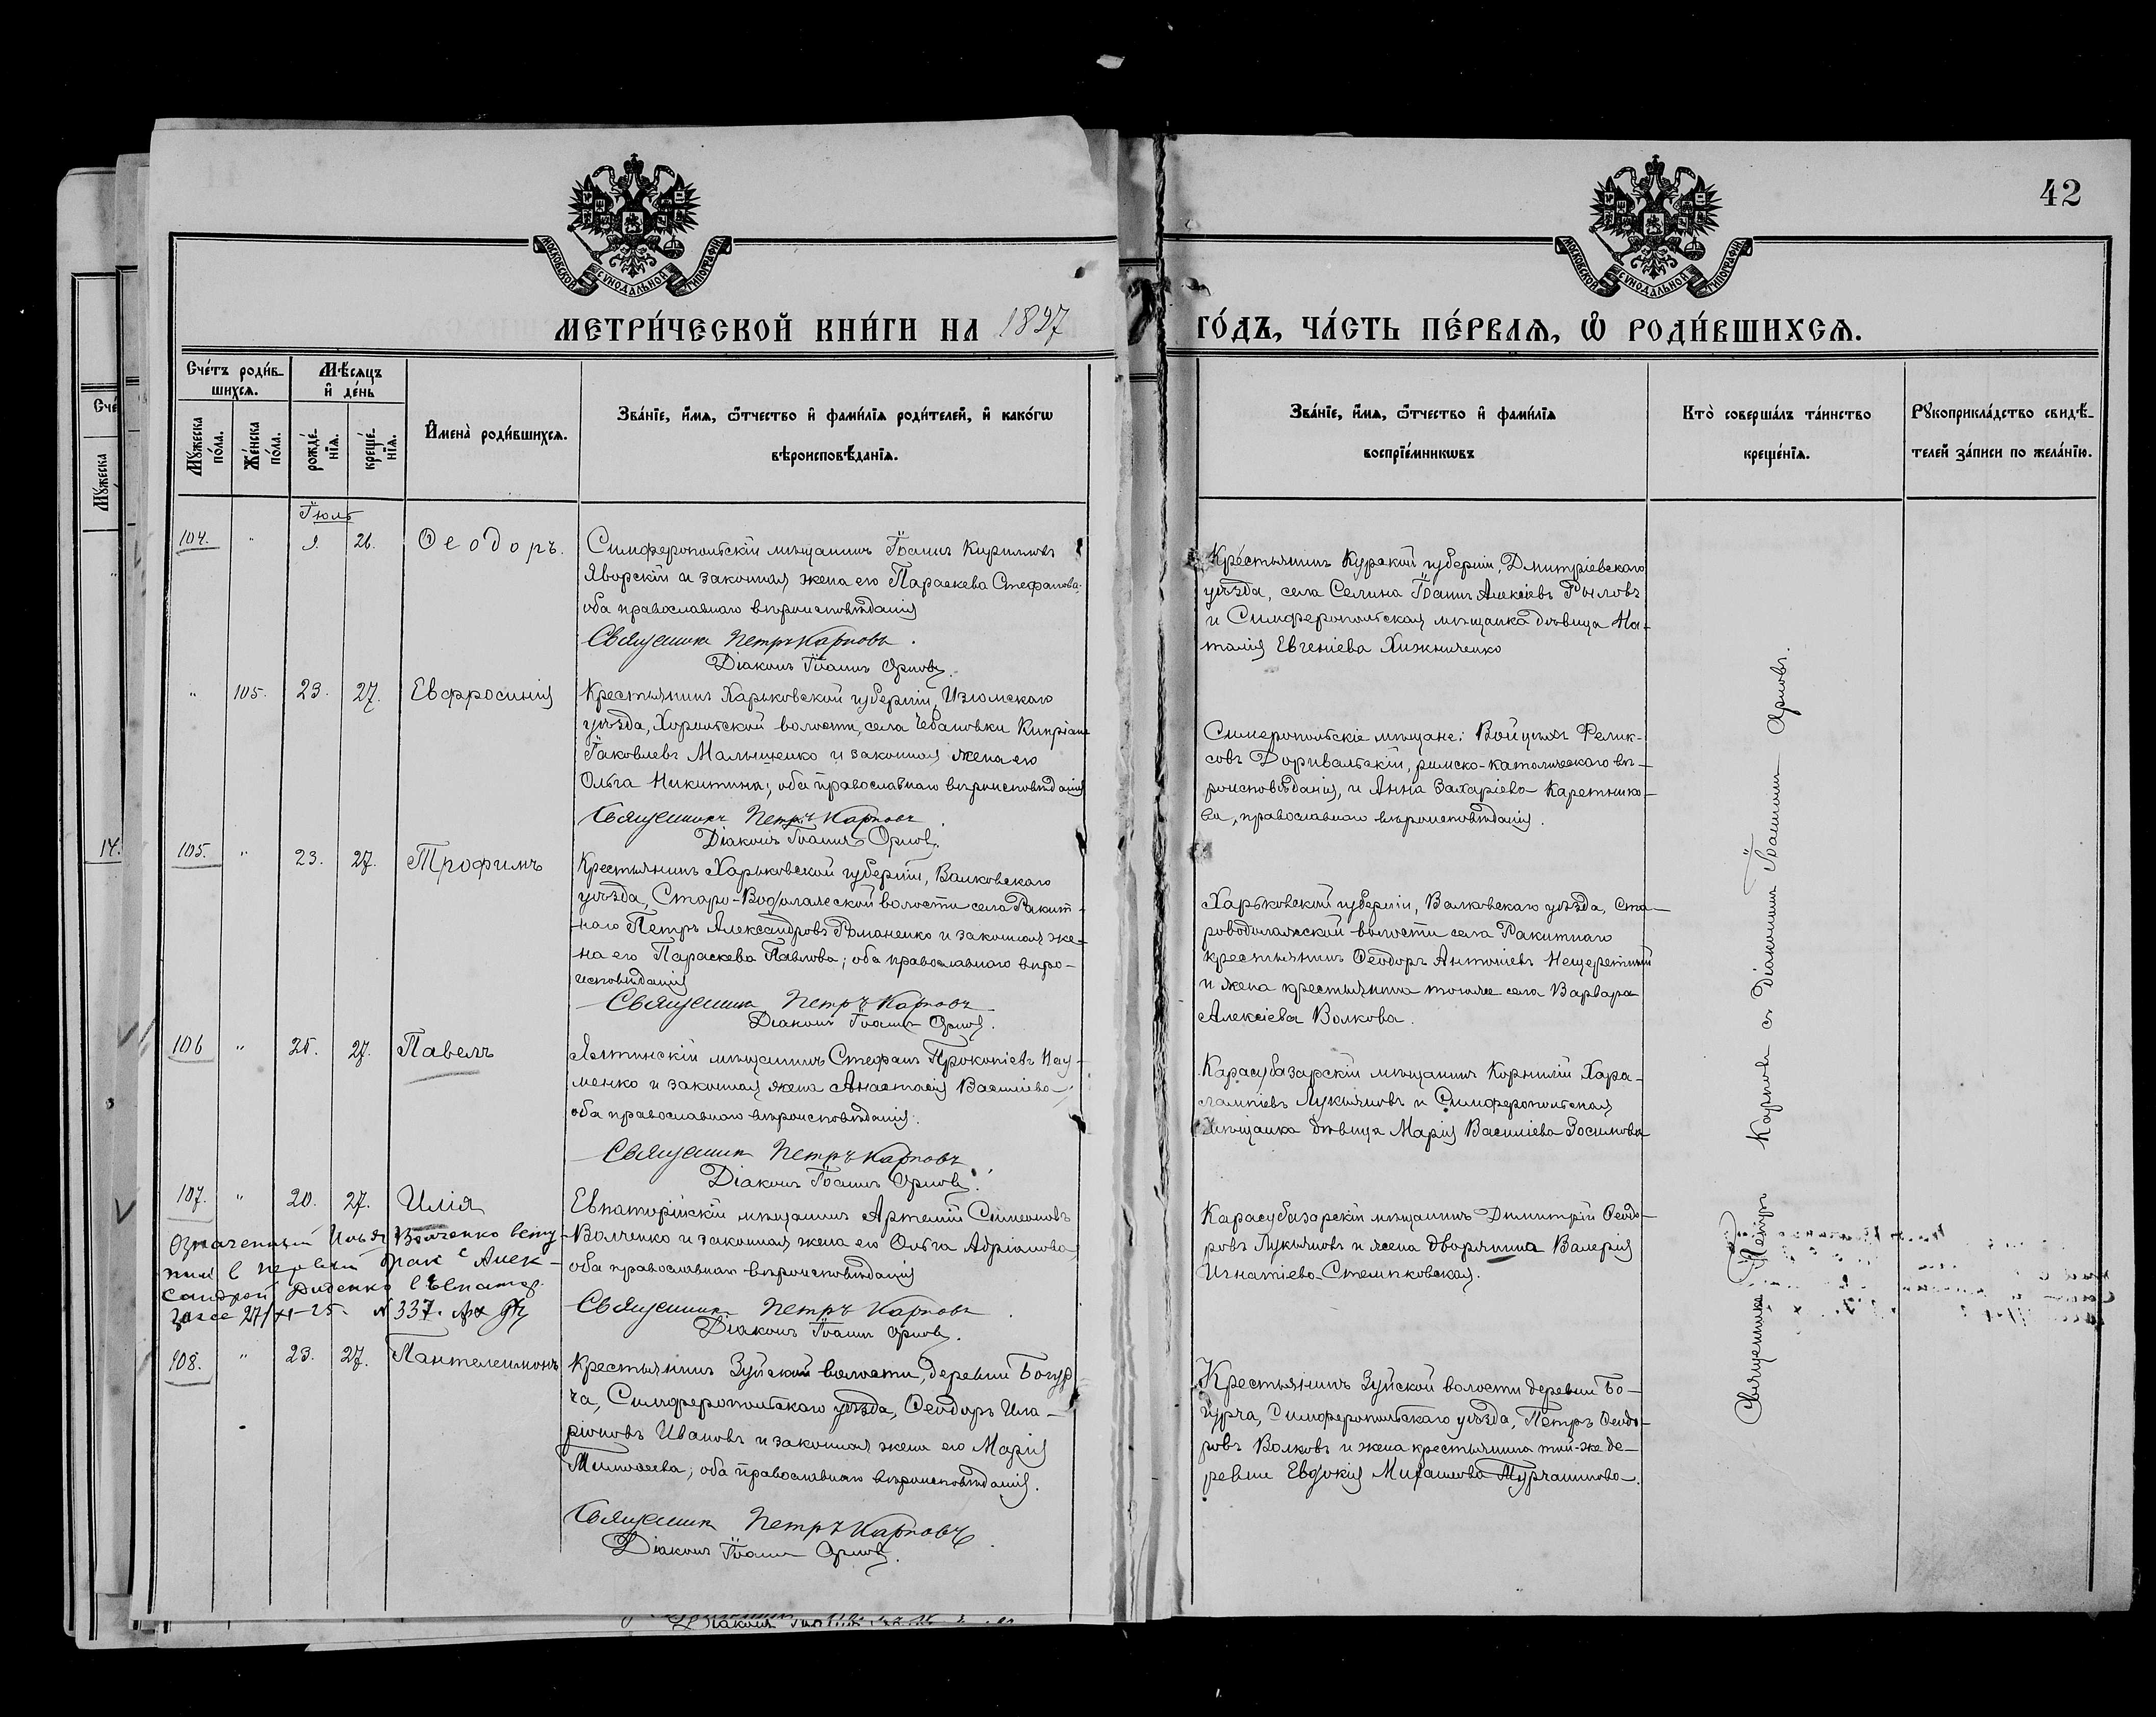 42
МОСКОВСКОЙ СѴНОДАЛЬНОЙ ТИПОГРАФІИ
МОСКОВСКОЙ СѴНОДАЛЬНОЙ ТИПОГРАФІИ
МЕТРИ́ЧЕСКОЙ КНИ́ГИ НА 1897
ГО́ДЪ, ЧА́СТЬ ПЕ́РВАЯ, Ѿ РОДИ́ВШИХСЯ.
Сче́тъ роди́в-
шихся.
Мꙋ́жеска
по́ла.
Же́нска
по́ла.
Мѣ́сяцъ
и҆ де́нь
рожде́-
нїя.
креще́-
нїя.
И҆мена̀ роди́вшихся.
Зва́нїе, и҆́мя, ѻ҆́тчество и҆ фами́лїя роди́телей, и҆ како́гѡ
вѣроисповѣ́данїя.
Зва́нїе, и҆́мя, ѻ҆́тчество и҆ фами́лїя
воспрїе́мникѡвъ
Кто̀ соверша́лъ та́инство
креще́нїя.
Рꙋкоприкла́дство свидѣ́-
телей за́писи по жела́нїю.
Іюль
104. " 9. 26. Ѳеодоръ.
Симферопольскій мѣщанинъ Іоаннъ Кирилловъ
Яворскій и законная жена его Параскева Стефанова;
оба православнаго вѣроисповѣданія
Священникъ Петръ Карповъ.
Діаконъ Іоаннъ Орловъ.
Крестьянинъ Курской губерніи, Дмитріевскаго
уѣзда, села Селина Іоаннъ Алексіевъ Рыловъ
и Симферопольская мѣщанка дѣвица На-
талія Евгеніева Хижниченко
" 105. 23. 27. Евфросинія
Крестьянинъ Харьковской губерніи, Изюмскаго
уѣзда, волости, села Чепановки Кипріанъ
Іаковлевъ Малыщенко и законная жена его
Ольга Никитина; оба православнаго вѣроисповѣданія
Священникъ Петръ Карповъ.
Діаконъ Іоаннъ Орловъ.
Симеропольскіе мѣщане: Войцехъ Фелик-
совъ Доривальскій, римско-католическаго вѣ-
роисповѣданія, и Анна Захаріева Каретнико-
ва, православнаго вѣроисповѣданія.
105. " 23. 27. Трофимъ
Крестьянинъ Харьковской губерніи, Валковскаго
уѣзда, Старо-Водолажской волости села Ракит-
наго Петръ Александровъ Романенко и законная же-
на его Параскева Павлова; оба православнаго вѣро-
исповѣданія
Священникъ Петръ Карповъ
Діаконъ Іоаннъ Орловъ.
Харьковской губерніи, Валковскаго уѣзда, Ста-
роводолажской волости села Ракитнаго
крестьянинъ Ѳеодоръ Антоніевъ
и жена крестьянина тогоже села Варвара
Алексіева Волкова.
106 " 25. 27. Павелъ
Ялтинскій мѣщанинъ Стефанъ Прокопіевъ Нау-
менко и законная жена Анастасія Василіева
оба православнаго вѣроисповѣданія.
Священникъ Петръ Карповъ
Діаконъ Іоаннъ Орловъ.
Карасубазарскій мѣщанинъ Корнилій Хара-
лампіевъ Лукьяновъ и Симферопольская
мѣщанка дѣвица Марія Василіева Зосимова
107. " 20. 27. Илія
Евпаторійскій мѣщанинъ Артемій Симеоновъ
Волченко и законная жена его Ольга Адріанова
оба православнаго вѣроисповѣданія
Священникъ Петръ Карповъ.
Діаконъ Іоаннъ Орловъ.
Означенный Илья Волченко всту-
пил в первый брак с Алек-
сандрой Диденко в Евпатор.
загсе 27/XI-25. № 337.
Карасубазарскій мѣщанинъ Димитрій Ѳеодо-
ровъ Лукьяновъ и жена дворянина Валерія
Игнатіева Стемпковская.
108. " 23. 27. Пантелеимонъ
Крестьянинъ Зуйской волости, деревни Богур-
ча, Симферопольскаго уѣзда, Ѳеодоръ Ила-
ріоновъ Ивановъ и законная жена его Марія
Тимоѳеева; оба православнаго вѣроисповѣданія.
Священникъ Петръ Карповъ.
Діаконъ Іоаннъ Орловъ.
Крестьянинъ Зуйской волости деревни Бо-
гурча, Симферопольскаго уѣзда, Петръ Ѳеодо-
ровъ Волковъ и жена крестьянина той-же де-
ревни Евдокія Михаилова Турчанинова.
Священникъ Петръ Карповъ съ Діакономъ Іоанномъ Орловъ.
14.